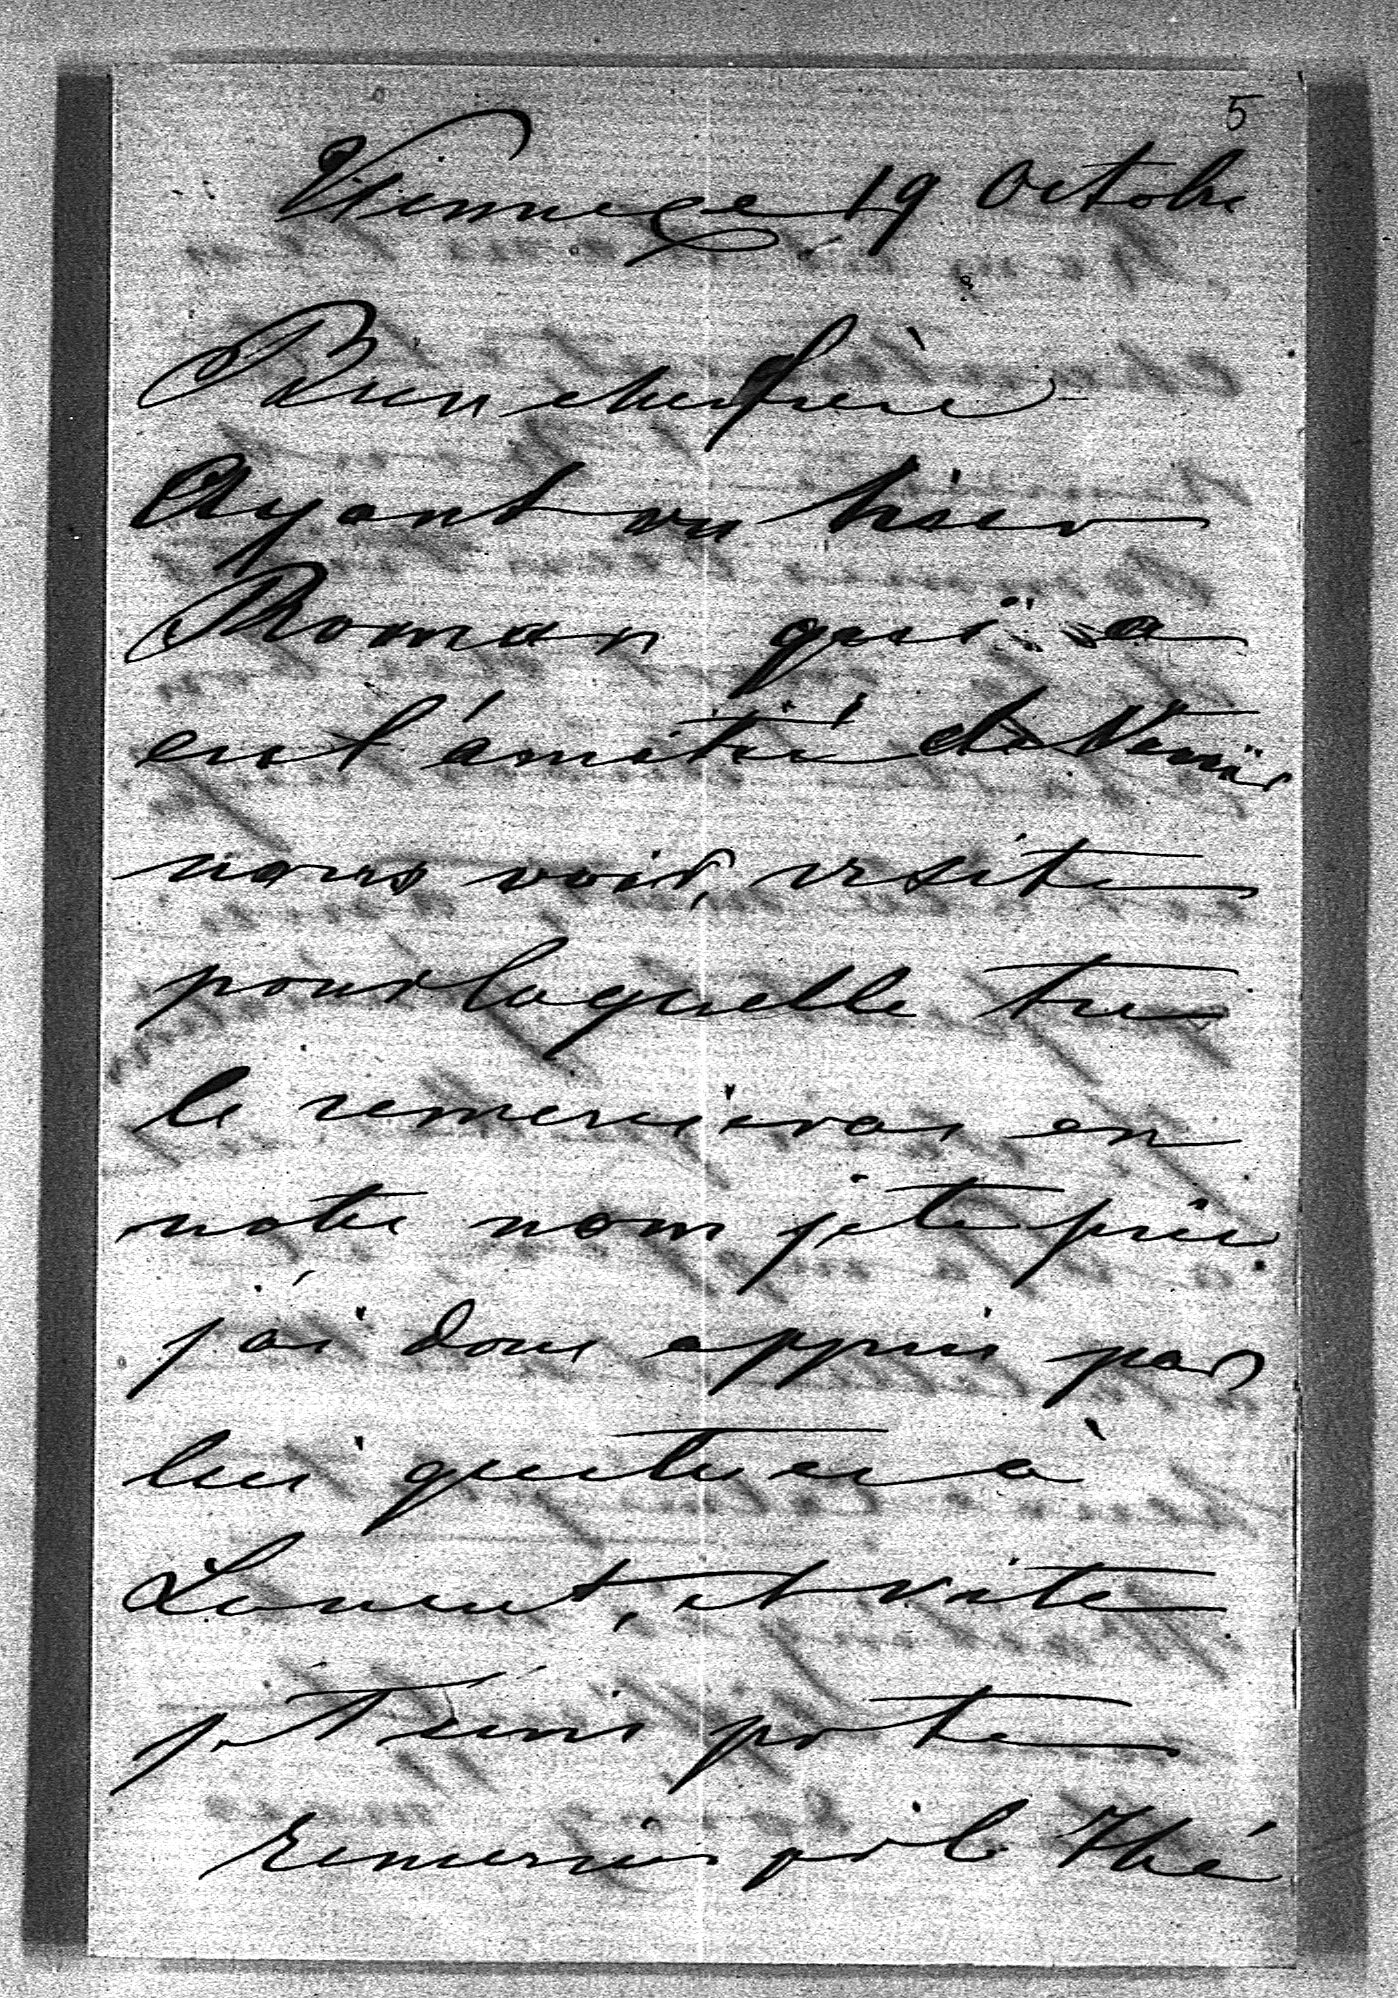 5
19 Octobre
Bien cher frère
Ayant vu hier
Roman qui a
eut l'amitié de Venir
nous voir, visite
pour laquelle tu
le remercieras en
notre nom je te prie
j'ai donc appris par
lui que tu es à
Laurent, et vite
je t'écris pr te
remercier pr le Thé